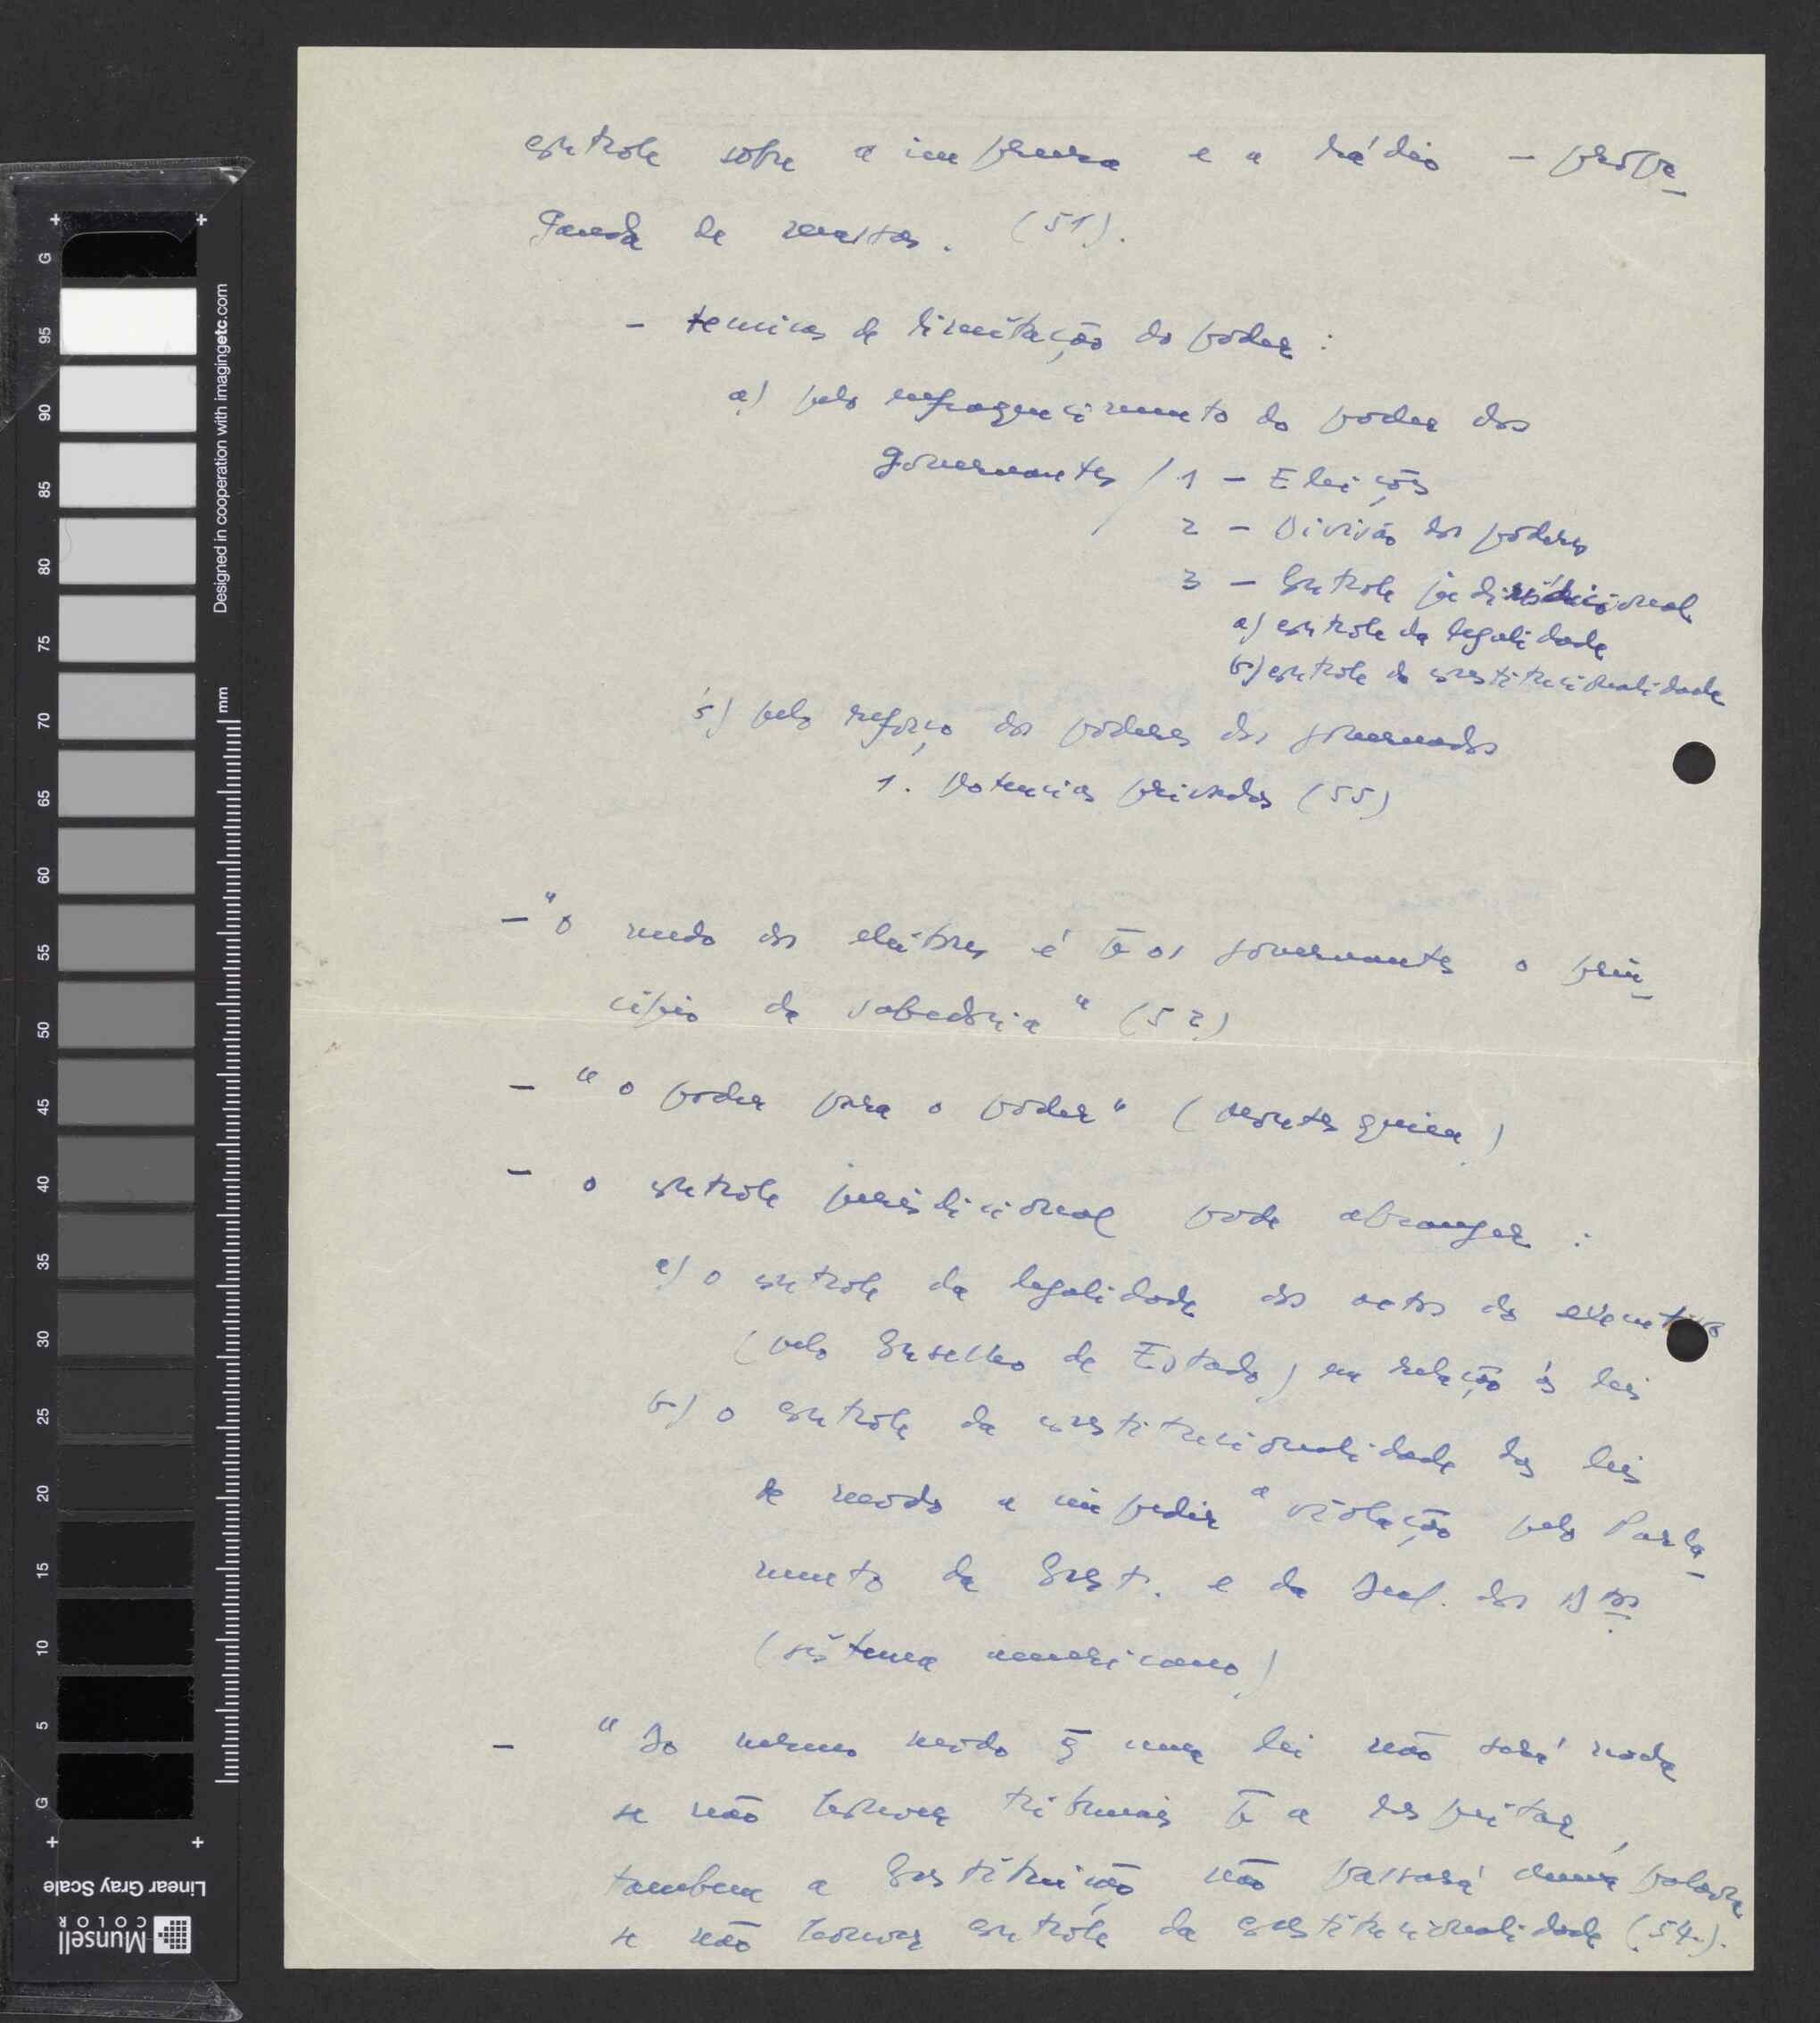 controle sobre a imprensa e a rádio – propa-
ganda de massas. (51).
– tecnicas de limitação do poder :
a) pelo enfraquecimento do poder dos
governantes / 1 – Eleições
2 – Divisão dos podêres
3 – Controle jurisdicional
a) contrôle da legalidade
b) contrôle da constitucionalidade
b) pelo reforço dos podêres dos governados
1. Potencias privadas (55)
– "o medo dos eleitores é p̄ os governantes o prin-
cipio da sabedoria" (52)
– "o poder para o poder" (Montesquieu)
– o contrôle jurisdicional pode abranger :
a) o contrôle da legalidade dos actos do executivo
(pelo Conselho de Estado) em relação ás leis
b) o contrôle da constitucionalidade das leis
de modo a impedir a violação pelo Parla-
mento da Const. e da Decl. dos Dtos
(sistema americano)
– "Do mesmo modo q̄ uma lei não será nada
se não houver tribunais p̄ a respeitar,
tambem a Constituição não passará duma palavra
se não houver contrôle da constitucionalidade (54).
Designed in cooperation with imagingetc.com
mm
G 95 90 85 80 75 70 65 60 55 50 45 40 35 30 25 20 15 10 5 G
Linear Gray Scale
Munsell
COLOR